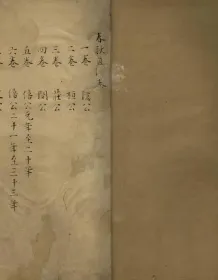 春秋
一卷 隱公
二卷 桓公
三卷 莊公
四卷 閔公
五卷 僖公元年至二十年
六卷 僖公二十一年至三十三年